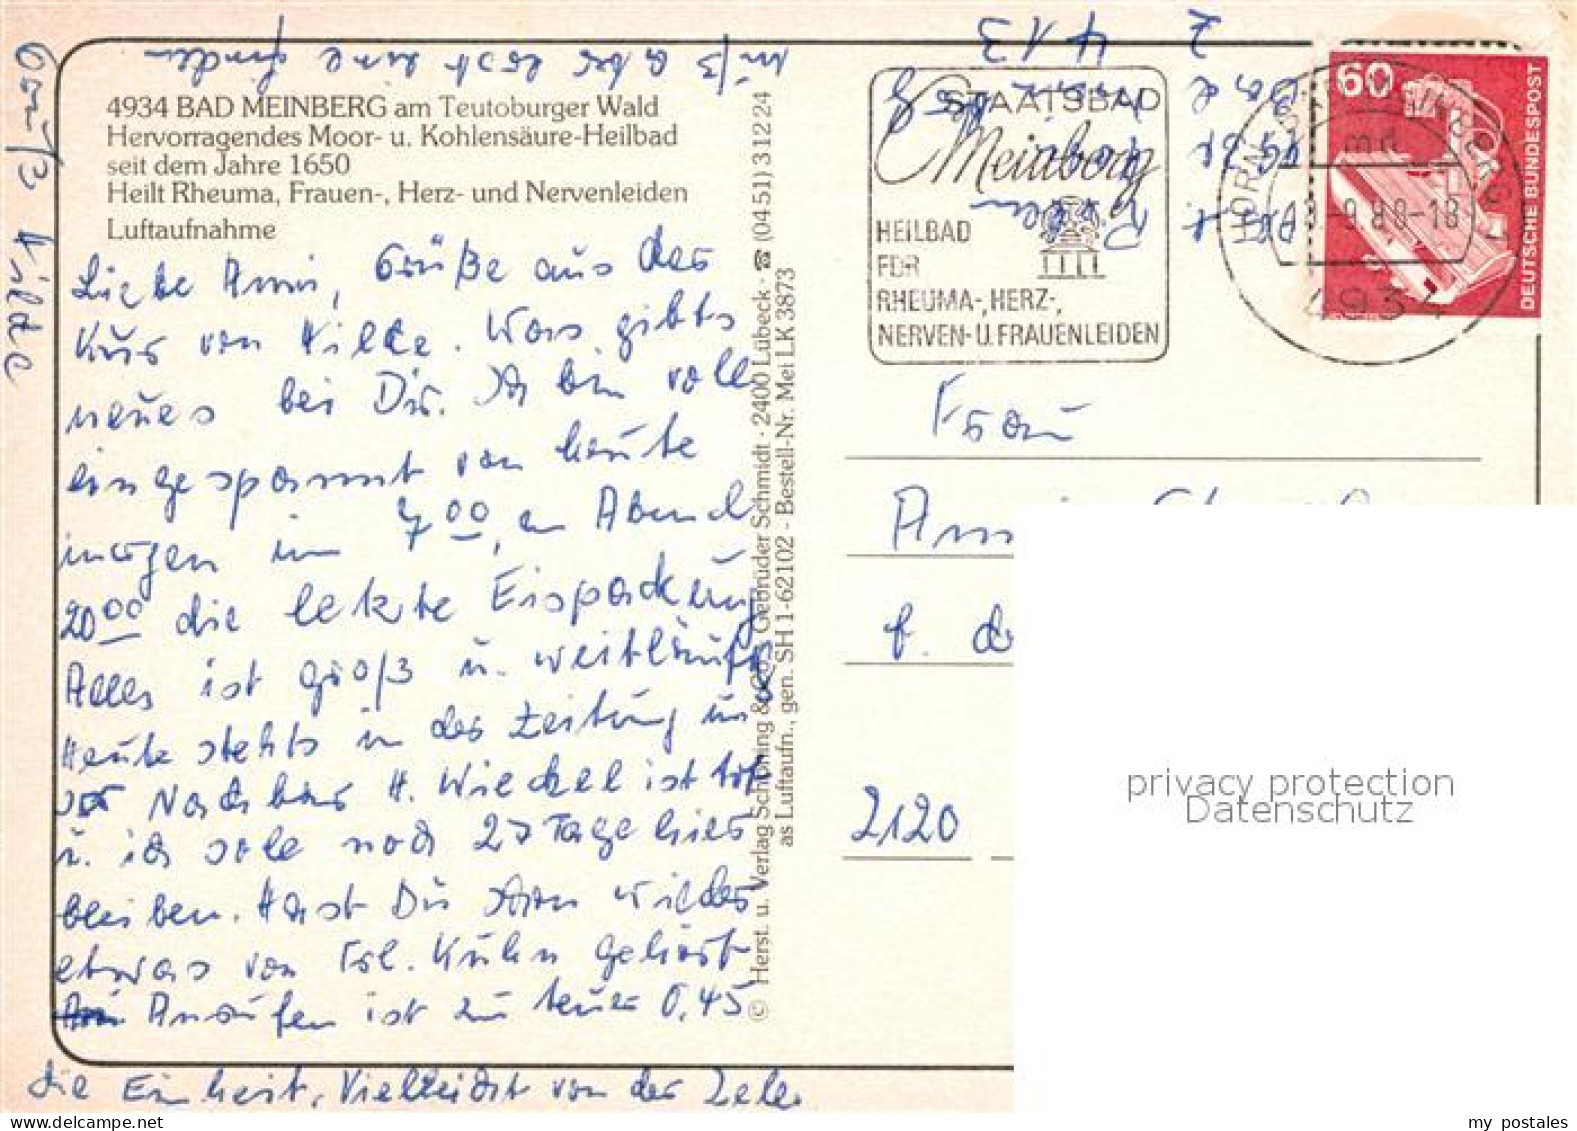 4934 BAD MEINBERG am Teutoburger Wald
Hervorragendes Moor- u. Kohlensäure-Heilbad
seit dem Jahre 1650
Heilt Rheuma, Frauen-, Herz- und Nervenleiden
Luftaufnahme
Liebe Anni, Grüße aus der
Kur von Hilde. Was gibts
neues bei Dir. Ich bin voll
eingespannt von heute
morgen um 7 00, am Abend
20 00 die letzte Eispackung
Alles ist groß u. weitläufig
Heute stehts in der Zeitung
Nachbar H. Wieckel ist tot
u. ich solle noch Tage hier
bleiben. Hast Du schon wieder
etwas von Frl. Kühn gehört
Anrufen ist zu teuer 0,45
die Einheit, Vielleicht von der Zelle.
muß aber erst eine finden
Gruß Hilde
© Herst. u. Verlag Schöning & Co. + Gebrüder Schmidt · 2400 Lübeck · ☎ (04 51) 3 12 24
as Luftaufn., gen. SH 1-62102 - Bestell-Nr. Mei LK 3873
STAATSBAD
Meinberg
HEILBAD
FÜR
RHEUMA-, HERZ-,
NERVEN- U. FRAUENLEIDEN
HORN-BAD MEINBERG 1
md
-9.88-18
4934
60
DEUTSCHE BUNDESPOST
413
Frau
2120
privacy protection
Datenschutz
my postales